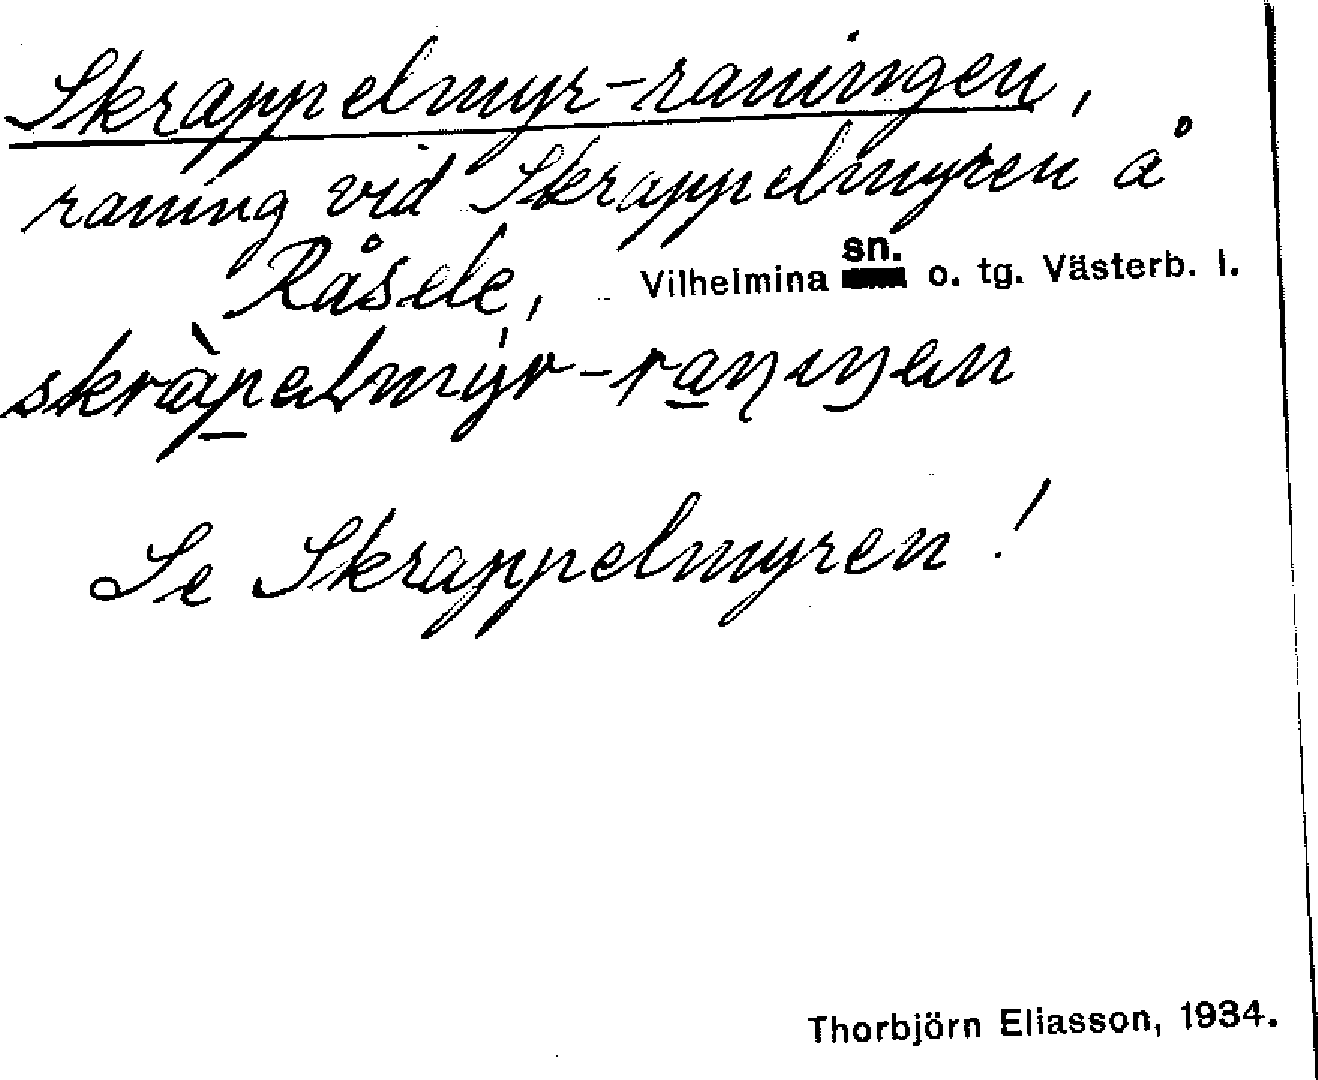 Skrappelmyr-raningen,
raning vid Skrappelmyren å
Råsele, Vilhelmina sn. o. tg. Västerb. l.
skràpelmyr-raniŋen
Se Skrappelmyren!
Thorbjörn Eliasson, 1934.